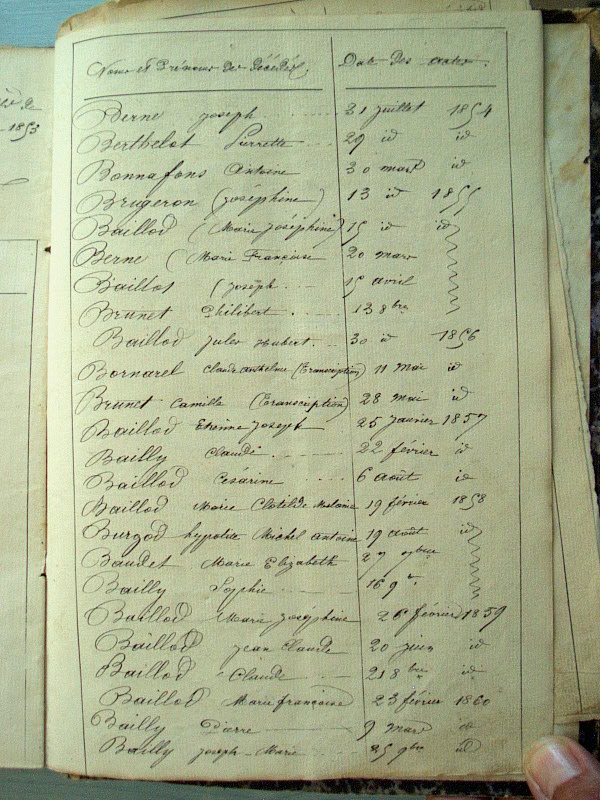 Noms et Prénoms des Décédés, Date des actes.
Berne Joseph 31 juillet 1854
Berthelot Pierrette 29 id id
Bonnafons Antoine 30 mars id
Brugeron (Joséphine) 13 id 1855
Baillod (Marie Joséphine) 15 id id
Berne (Marie Françoise 20 mars
Baillod (Joseph 15 avril
Brunet Philibert 13 8bre
Baillod Jules Hubert 30 id 1856
Bornarel Claude Anthelme (Transcription) 11 Mai id
Brunet Camille (Transcription) 28 mai id
Baillod Etienne Joseph 25 janvier 1857
Bailly Claude 22 février id
Baillod Césarine 6 août id
Baillod Marie Clotilde 19 février 1858
Burgod hypolite Michel Antoine 19 août id
Baudet Marie Elizabeth 27 9bre
Bailly Sophie 16 9
Baillod Marie Joséphine 26 février 1859
Baillod jean Claude 20 juin id
Baillod Claude 21 8bre id
Baillod Marie françoise 23 février 1860
Bailly Pierre 9 mars id
Bailly Joseph-Marie 25 9bre id
de
1853